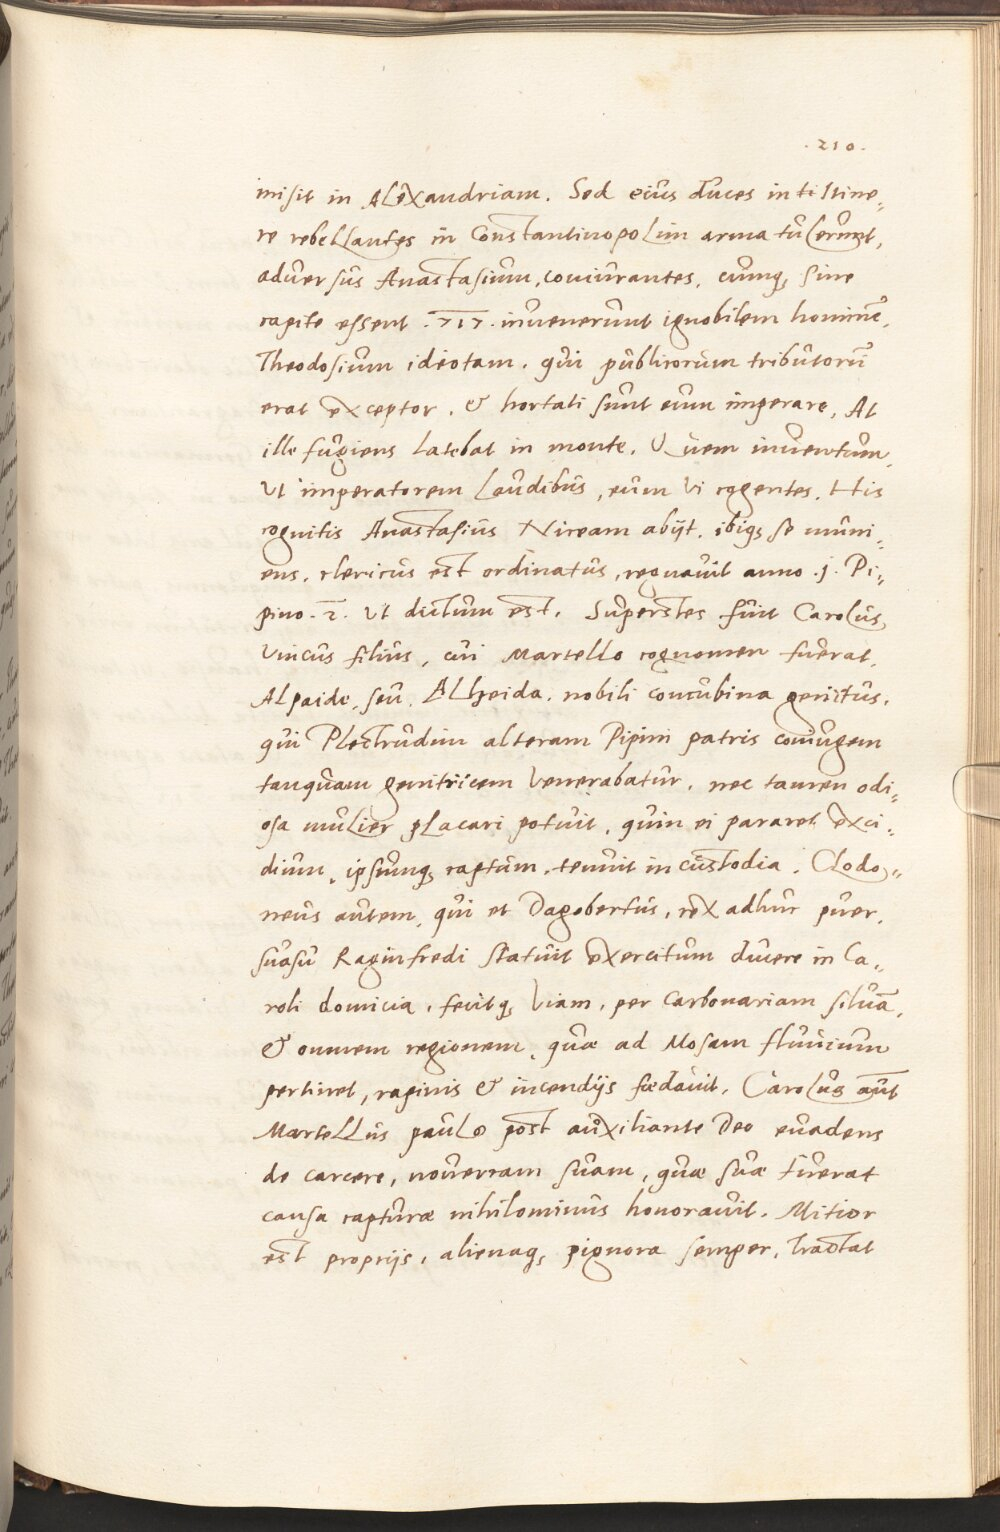 .210.
misit in Alexandriam. Sed eius duces in ti Itine„
re rebellantes in Constantinopolim arma tulerunt,
aduersus Anastasium, coniurantes, cumq, sine
capite essent .717. inuenerunt ignobilem hominē,
Theodosium ideotam, qui publicorum tributorū
erat exceptor, & hortati sunt eum imperare, At
ille fugiens latebat in monte, Quem inuentum,
Vt imperatorem laudibus, eum vi cogentes, His
cognitis Anastasius Niceam abijt, ibiq, se muni„
ens, clericus est ordinatus, regnauit anno .j. Pi„
pino .2. vt dictum est, Superstes fuit Carolus,
Vnicus filius, cui Martello cognomen fuerat,
Alpaide, seu, Alheida, nobili concubina genitus,
qui Plectrudim alteram Pipini patris coniugem
tanquam genitricem Venerabatur, nec tamen odi„
osa mulier placari potuit, quin ei pararet exci„
dium, ipsumq, captum, tenuit in custodia. Clodo„
neus autem, qui et Dagobertus, rex adhuc puer,
suasu Raginfredi statuit exercitum ducere in Ca„
roli domicia, fecitq, Viam, per Carbonariam siluā,
& omnem regionem, quæ ad Mosam fluuium
pertinet, rapinis & incendijs fœdauit, Carolus aūt
Martellus paulo post auxiliante Deo euadens
de carcere, nouercam suam, quæ suæ fuerat
causa capturæ nihilominus honorauit, Mitior
est proprijs, alienaq, pignora semper, Tractat